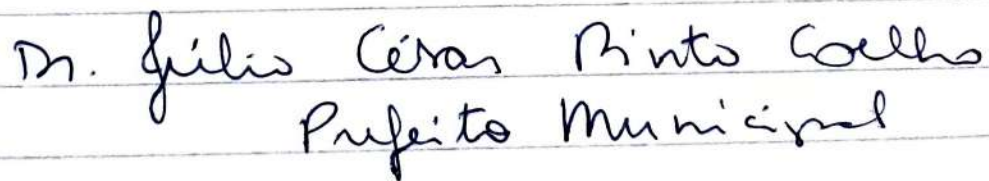 Dr. Júlio César Pinto Coelho
Prefeito Municipal